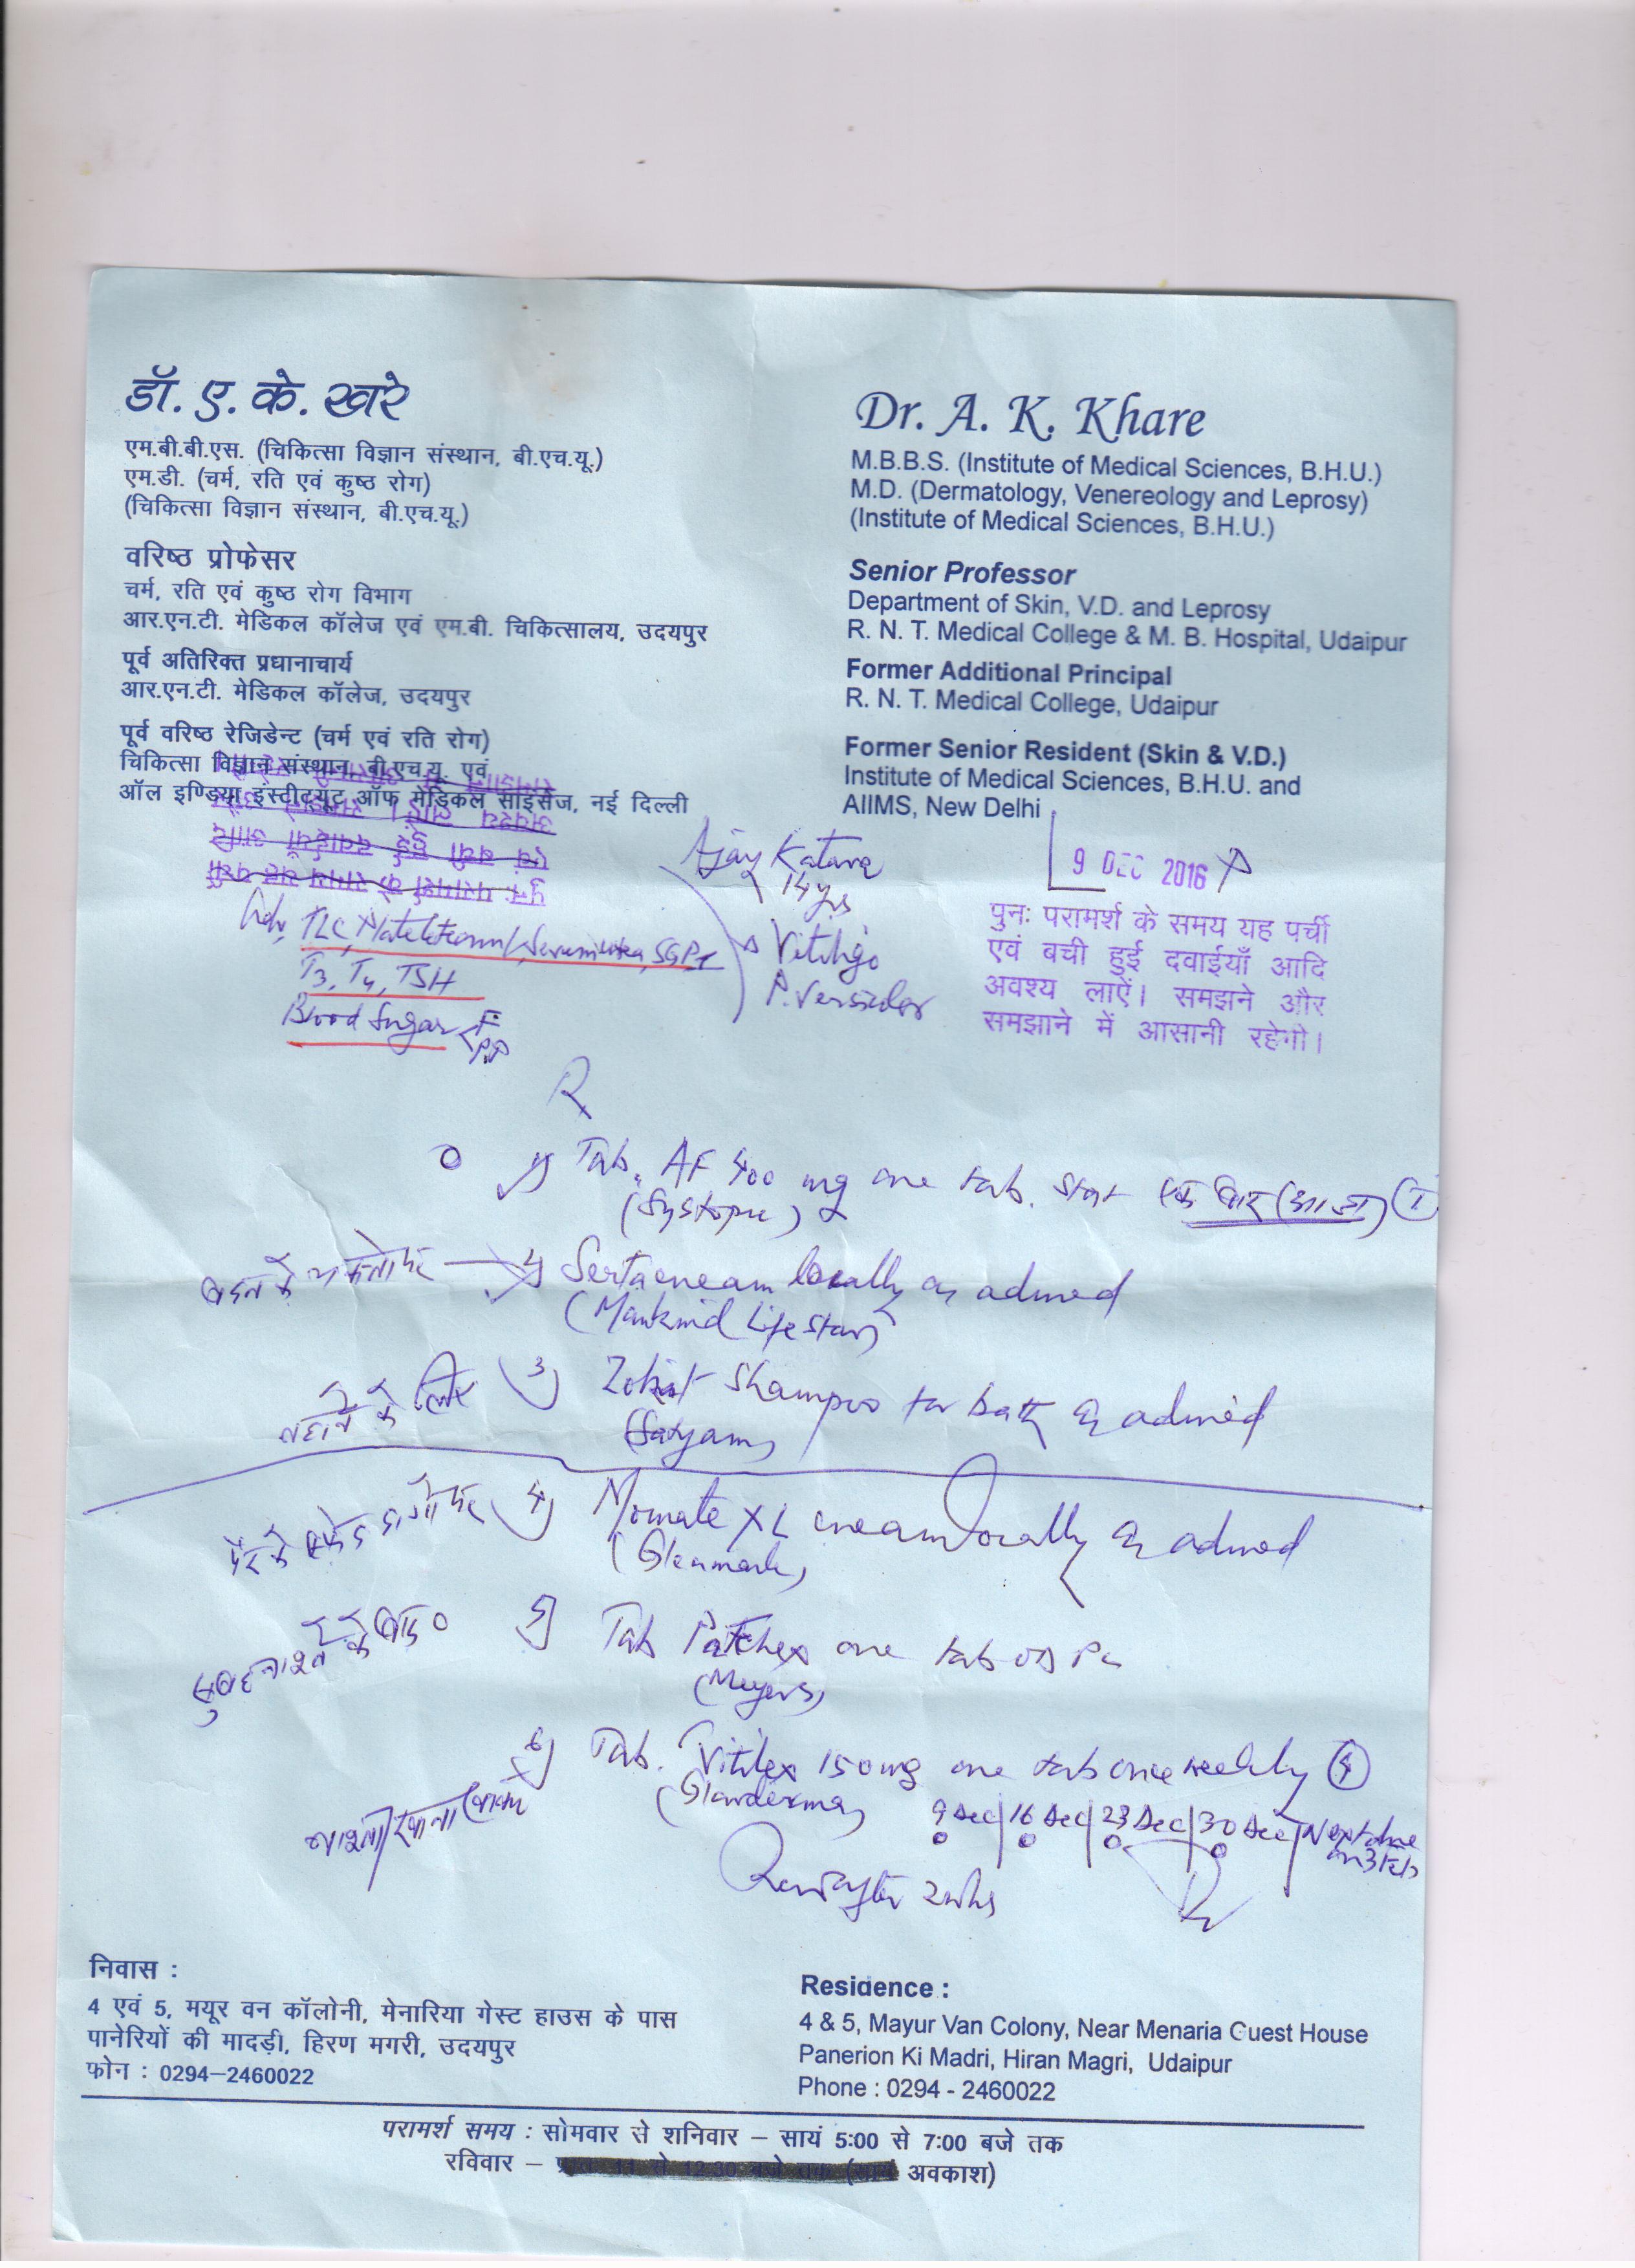 डॉ. ए. के. खरे
एम.बी.बी.एस. (चिकित्सा विज्ञान संस्थान, बी.एच.यू.)
एम.डी. (चर्म, रति एवं कुष्ठ रोग)
(चिकित्सा विज्ञान संस्थान, बी.एच.यू.)
वरिष्ठ प्रोफेसर
चर्म, रति एवं कुष्ठ रोग विभाग
आर.एन.टी. मेडिकल कॉलेज एवं एम.बी. चिकित्सालय, उदयपुर
पूर्व अतिरिक्त प्रधानाचार्य
आर.एन.टी. मेडिकल कॉलेज, उदयपुर
पूर्व वरिष्ठ रेजिडेन्ट (चर्म एवं रति रोग)
चिकित्सा विज्ञान संस्थान, बी.एच.यू. एवं
ऑल इण्डिया इंस्टीट्यूट ऑफ मेडिकल साइंसेज, नई दिल्ली
Dr. A. K. Khare
M.B.B.S. (Institute of Medical Sciences, B.H.U.)
M.D. (Dermatology, Venereology and Leprosy)
(Institute of Medical Sciences, B.H.U.)
Senior Professor
Department of Skin, V.D. and Leprosy
R. N. T. Medical College & M. B. Hospital, Udaipur
Former Additional Principal
R. N. T. Medical College, Udaipur
Former Senior Resident (Skin & V.D.)
Institute of Medical Sciences, B.H.U. and
AIIMS, New Delhi
9 DEC 2016
पुनः परामर्श के समय यह पर्ची
एवं बची हुई दवाईयाँ आदि
अवश्य लाऐं। समझने और
समझाने में आसानी रहेगी।
Ajay Katara
14 yrs
Vitiligo
P. Versicolor
TLC, SGPT
T3, T4, TSH
Blood Sugar F
PP
R
1) Tab. AF 400 mg one tab. stat एक बार (आज) 1
(Systopic)
2) Serta cream locally as advised
(Mankind Lifestar)
नहाने के लिए 3) Shampoo for bath as advised
(Satyam)
पैर के सफेद दागों पर 4) Momate XL cream locally as advised
(Glenmark)
सुबह नाश्ते के बाद 5) Tab Patchex one tab OD PC
(Meyers)
6) Tab. Vitilex 150 mg one tab once weekly 4
9 Dec | 16 Dec | 23 Dec | 30 Dec | Next due
Rev after
निवास :
4 एवं 5, मयूर वन कॉलोनी, मेनारिया गेस्ट हाउस के पास
पानेरियों की मादड़ी, हिरण मगरी, उदयपुर
फोन : 0294–2460022
Residence :
4 & 5, Mayur Van Colony, Near Menaria Guest House
Panerion Ki Madri, Hiran Magri, Udaipur
Phone : 0294 - 2460022
परामर्श समय : सोमवार से शनिवार – सायं 5:00 से 7:00 बजे तक
रविवार – अवकाश)